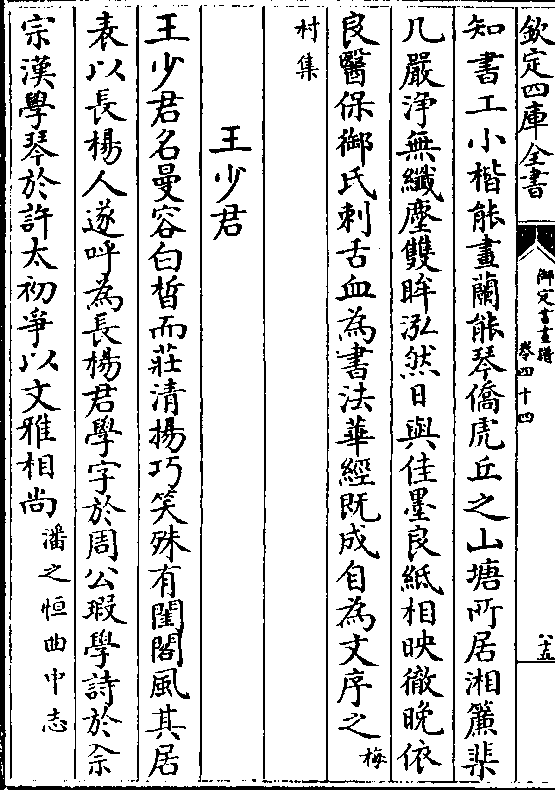 欽定四庫全書
御定書畫譜
卷四十四
八十五
知書工小楷能畫蘭能琴僑虎丘之山塘所居湘簾棐
几嚴浄無纖塵雙眸泓然日與佳墨良紙相映徹晚依
良醫保御氏刺舌血為書法華經既成自為文序之梅
村集
王少君
王少君名曼容白晳而莊清揚巧笑殊有閨閣風其居
表以長楊人遂呼為長楊君學字於周公瑕學詩於佘
宗漢學琴於許太初爭以文雅相尚潘之恒曲中志